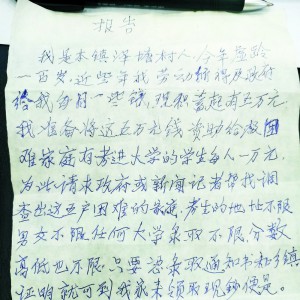 报告
我是本镇泽塘村人,今年虚龄
一百岁,近些年我劳动所得及政府
给我每月一些钱,现积蓄起有五万元,
我准备将这五万元钱资助给极困
难家庭有考进大学的学生每人一万元,
为此请求政府或新闻记者帮我调
查出这五户困难的家庭,考生的地址不限
男女不限任何大学录取不限,分数
高低也不限,只要凭录取通知书和乡镇
证明就可到我家来领取现钞便是。